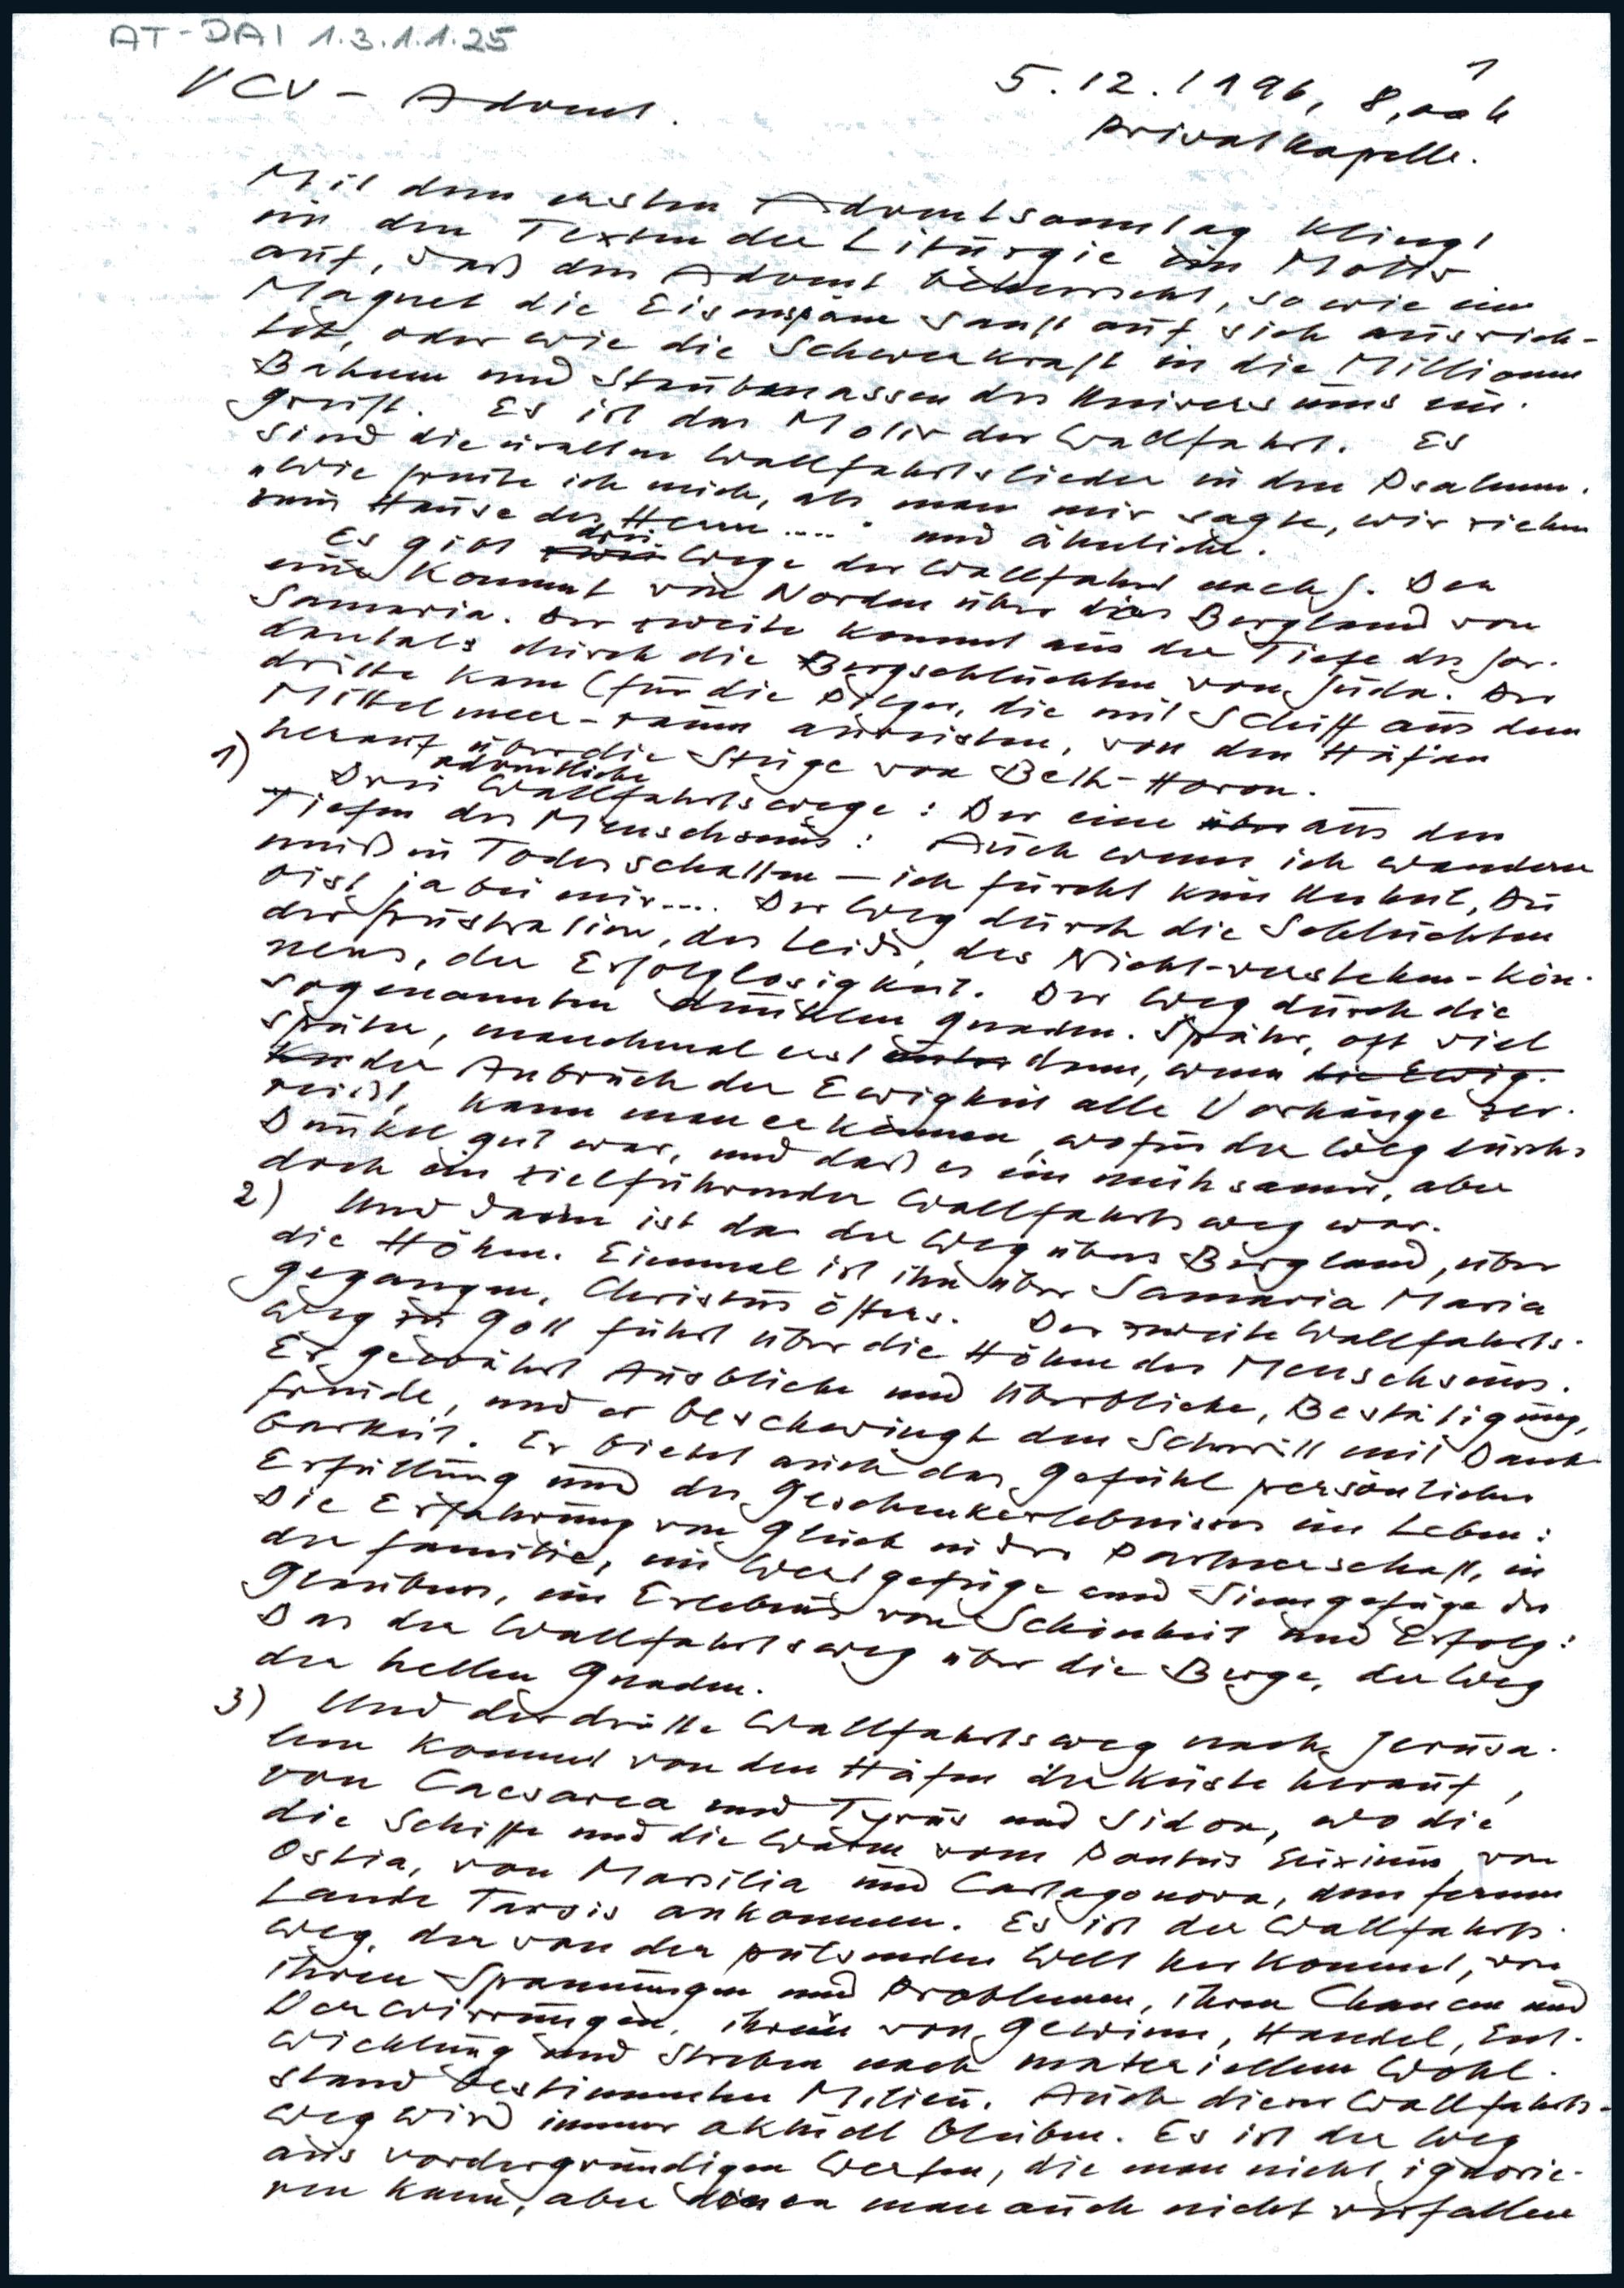 AT-DAI 1.3.1.1.25
1
VCV - Advent.
5.12.1996, 8,00 h
Privatkapelle.
Mit dem ersten Adventsonntag klingt
in den Texten der Liturgie ein Motiv
auf, daß den Advent beherrscht, so wie ein
Magnet die Eisenspäne sanft auf sich ausrich-
tet, oder wie die Schwerkraft in die Millionen
Bahnen und Staubmassen des Universums ein-
greift. Es ist das Motiv der Wallfahrt. Es
sind die uralten Wallfahrtslieder in den Psalmen.
"Wie freute ich mich, als man mir sagte, wir ziehen
zum Hause des Herrn ....." und ähnliche.
Es gibt drei Wege der Wallfahrt nach J. Der
eine kommt von Norden über das Bergland von
Samaria. Der zweite kommt aus der Tiefe des Jor-
dantals durch die Bergschluchten von Juda. Der
dritte kam (für die Pilger, die mit Schiff aus dem
Mittelmeer-raum anreisten, von den Häfen
herauf über die Steige von Beth-Horon.
1) Drei adventliche Wallfahrtswege: Der eine aus den
Tiefen des Menschseins: Auch wenn ich wandern
muß in Todesschatten - ich fürcht kein Unheil, Du
bist ja bei mir.... Der Weg durch die Schluchten
der Frustration, des Leids, des Nicht-verstehen-Kön-
nens, der Erfolglosigkeit. Der Weg durch die
sogenannten dunklen Gnaden. Später, oft viel
später, manchmal erst dann, wenn
der Anbruch der Ewigkeit alle Vorhänge zer-
reißt, kann man erkennen, wofür der Weg durchs
Dunkel gut war, und daß es ein mühsamer, aber
doch ein zielführender Wallfahrtsweg war.
2) Und dann ist da der Weg übers Bergland, über
die Höhen. Einmal ist ihn über Samaria Maria
gegangen, Christus öfters. Der zweite Wallfahrts-
weg zu Gott führt über die Höhen des Menschseins.
Er gewährt Ausblicke und Überblicke, Bestätigung,
Freude, und er beschwingt den Schritt mit Dank-
barkeit. Er bietet auch das Gefühl persönlicher
Erfüllung und des Geschenkerlebnisses im Leben:
Die Erfahrung von Glück in der Partnerschaft, in
der Familie, im Wertgefüge und Sinngefüge des
Glaubens, im Erlebnis von Schönheit und Erfolg:
Das der Wallfahrtsweg über die Berge, der Weg
der hellen Gnaden.
3) Und der dritte Wallfahrtsweg nach Jerusa-
lem kommt von den Häfen der Küste herauf,
von Caesarea und Tyrus und Sidon, wo die
die Schiffe und die Waren vom Pontus Euxinus, von
Ostia, von Marsilia und Cartagonova, dem fernen
Lande Tarsis ankommen. Es ist der Wallfahrts-
weg, der von der pulsenden Welt herkommt, von
ihren Spannungen und Problemen, ihren Chancen und
Verwirrungen, ihrem von Gewinn, Handel, Ent-
wicklung und Streben nach materiellem Wohl-
stand bestimmten Milieu. Auch dieser Wallfahrts-
weg wird immer aktuell bleiben. Es ist der Weg
aus vordergründigen Werten, die man nicht ignorie-
ren kann, aber denen man auch nicht verfallen